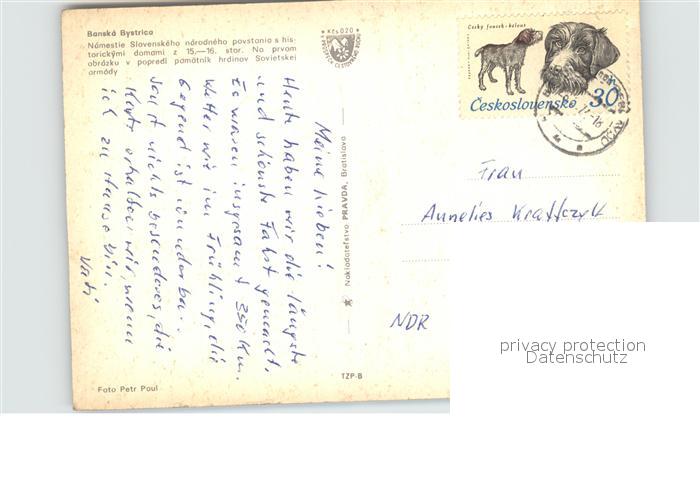 Banská Bystrica
Námestie Slovenského národného povstania s his-
torickými domami z 15.—16. stor. Na prvom
obrázku v popredí pamätník hrdinov Sovietskej
armády
Kčs 0,20
Český fousek - hělout
Československo 30
Meine Lieben!
Heute haben wir die längste
und schönste Fahrt gemacht.
Es waren insgesamt 350 km.
Wetter wie im Frühling, die
Gegend ist wunderbar.
Sonst nichts besonderes, die
Karte erhalten wir, wenn
ich zu Hause bin.
Vati
Nakladateľstvo PRAVDA, Bratislava
TZP-B
Foto Petr Paul
Frau
Annelies Krafczyk
NDR
privacy protection
Datenschutz